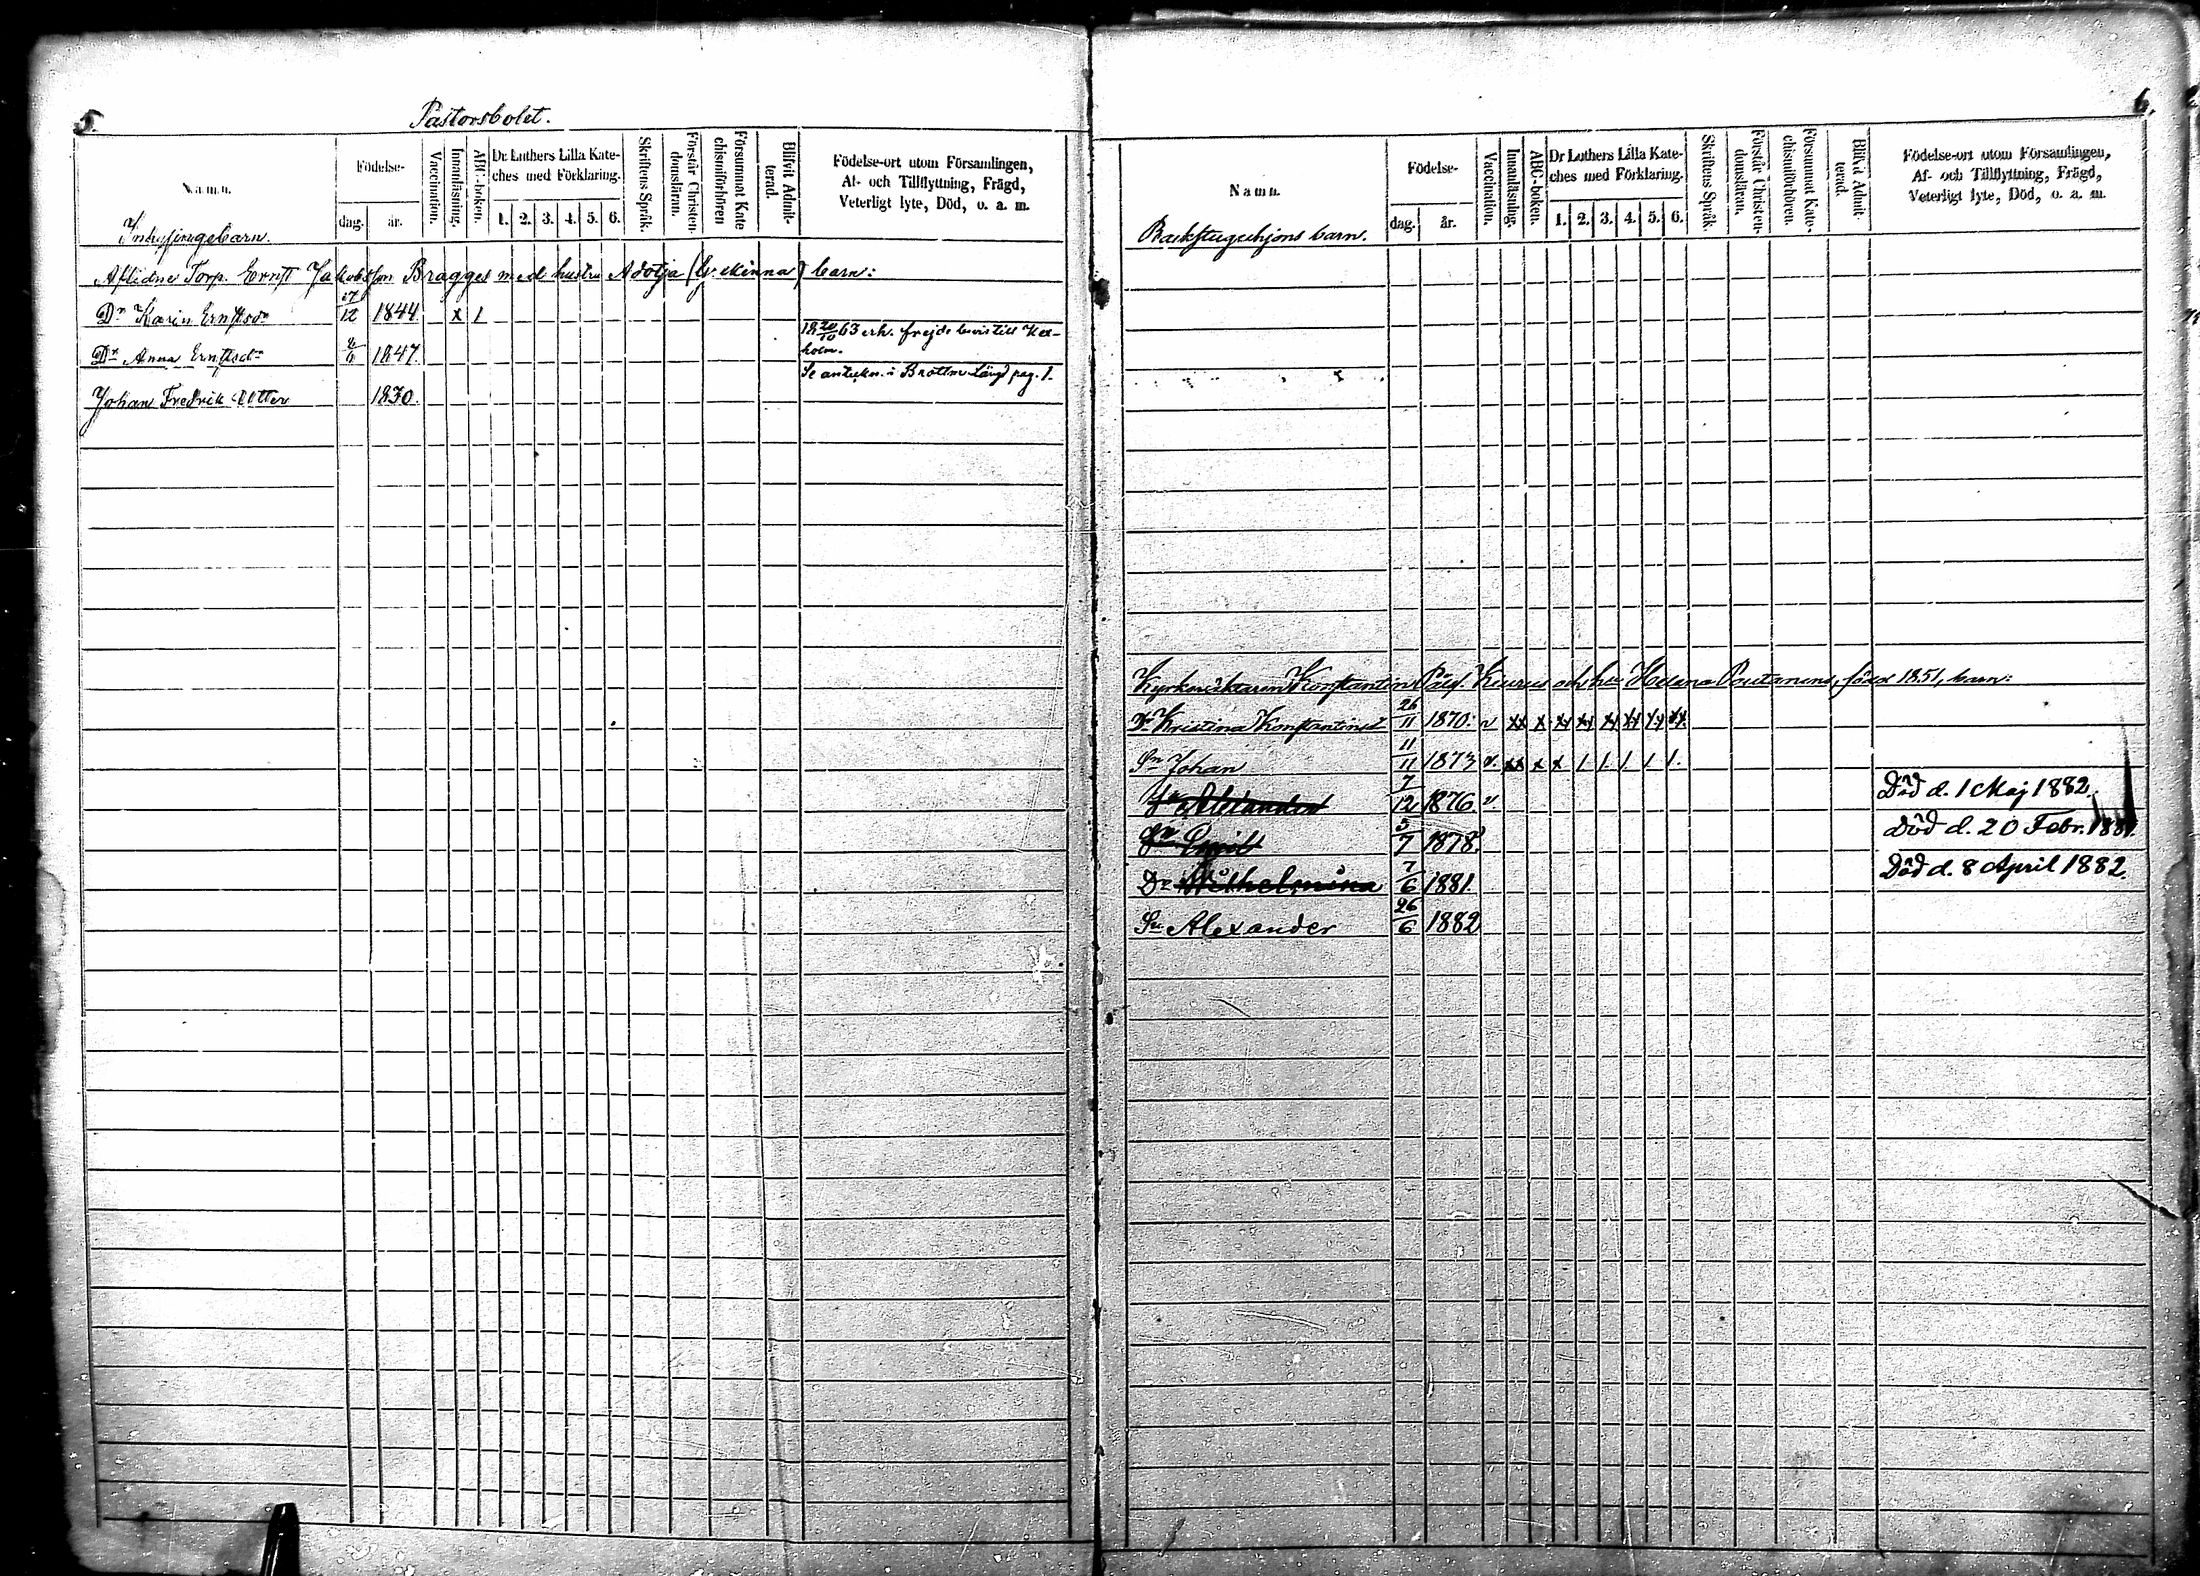 5.
Pastorsbolet.
Namn.
Födelse-
dag. år.
Vaccination.
Innanläsning.
ABC-boken.
Dr. Luthers Lilla Kate-
ches med Förklaring.
1. 2. 3. 4. 5. 6.
Skriftens Språk.
Förstår Christen-
domsläran.
Försummat Kate
chismiförhören
Blifvit Admit-
terad.
Födelse-ort utom Församlingen,
Af- och Tillflyttning, Frägd,
Veterligt lyte, Död, o. a. m.
Inhysingebarn.
Aflidne Torp. Ernst Jakobsson Bragges med hustru barn:
Dr Karin Ernstsdr 27/12 1844 x 1
18 20/10 63 erh. frejdebevis till Kex-
holm.
Dr Anna Ernstsdr 1847.
Se anteckn. i Brottm Längd pag. 1.
Johan Fredrik 1830
6.
Namn.
Födelse-
dag. år.
Vaccination.
Innanläsning.
ABC-boken.
Dr Luthers Lilla Kate-
ches med Förklaring.
1. 2. 3. 4. 5. 6.
Skriftens Språk.
Förstår Christen-
domsläran.
Försummat Kate-
chismiförhören.
Blifvit Admit-
terad.
Födelse-ort utom Församlingen,
Af- och Tillflyttning, Frägd,
Veterligt lyte, Död, o. a. m.
Backstuguhjons barn.
Konstantin och hu Helena Poutanens, född 1851, barn:
Dr Kristina Konstantinsd 26/11 1870. v xx x xx xx xx xx xx xx
Sn Johan 11/11 1873 v. xx x x 1 1 1 1 1.
Sn Alexander 7/12 1876. v Död d. 1 Maj 1882.
Sn Emil 5/7 1878. Död d. 20 Febr. 1881.
Dr Wilhelmina 7/6 1881. Död d. 8 April 1882.
Sn Alexander 26/6 1882